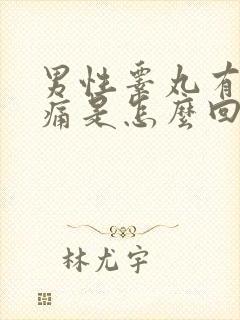 男性睾丸有
痛是怎麼回
林尤宇